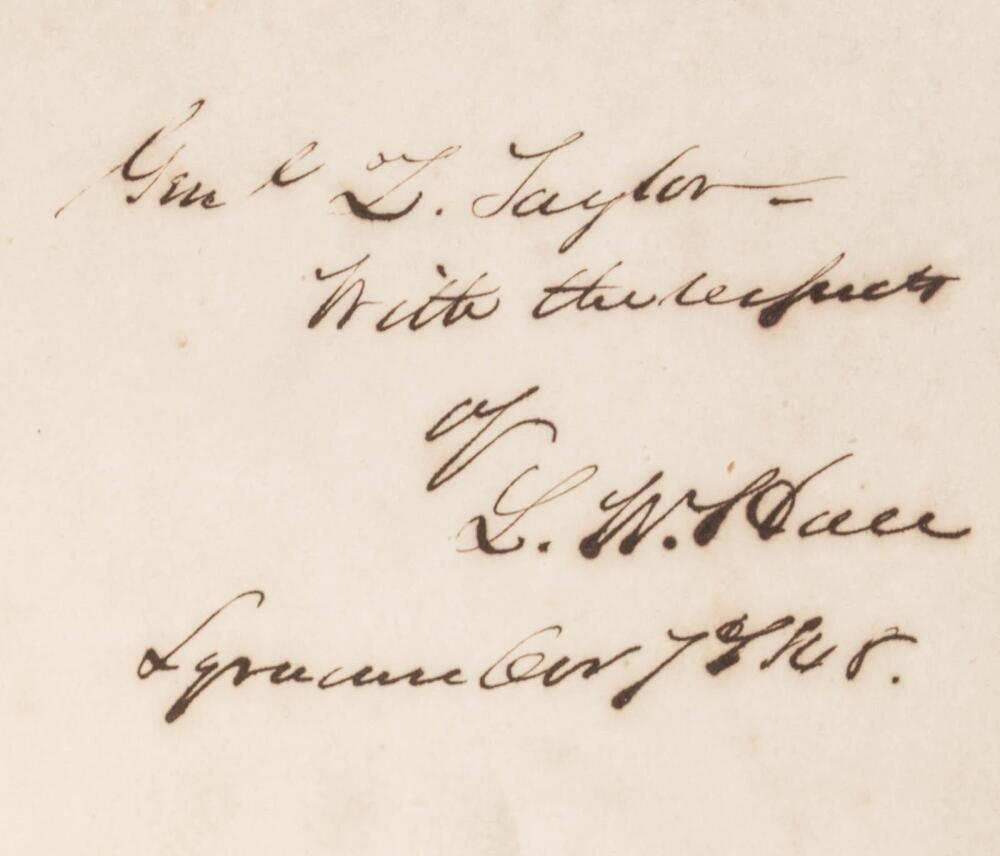 Genl Z. Taylor —
With the respects
of
L. W. Hall
Syracuse 7th 1848.